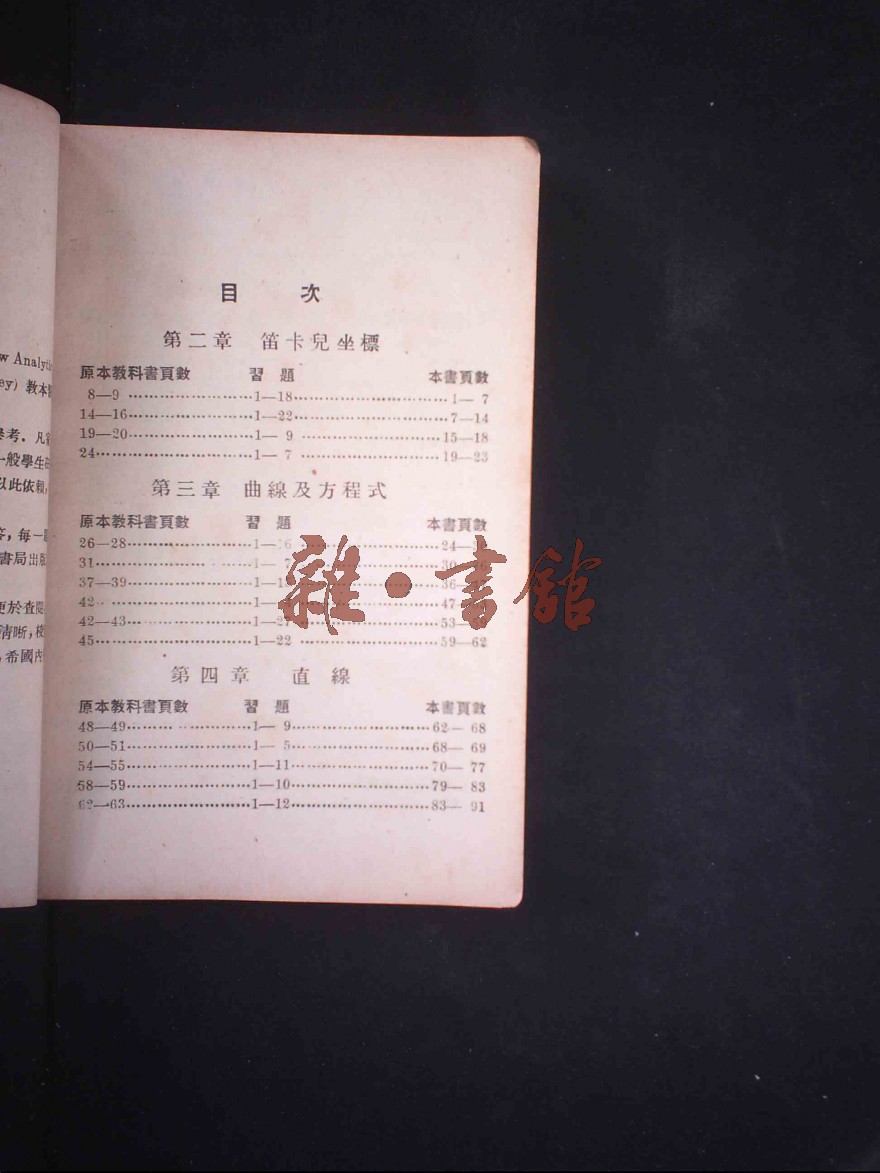 w Analyti
ey) 教本
參考．凡
一般學生
以此依賴，
答，每一
書局出版
更於查閱
清晰，校
，希國內
目 次
第二章 笛卡兒坐標
原本教科書頁數 習題 本書頁數
8—9 ……………………1—18……………………1— 7
14—16……………………1—22……………………7—14
19—20……………………1— 9 ……………………15—18
24……………………1— 7 ……………………19—23
第三章 曲線及方程式
原本教科書頁數 習題 本書頁數
26—28……………………1— 6……………………24—
31……………………1— 7……………………30—36
37—39……………………1—1 ……………………36—
42……………………1— ……………………47—
42—43……………………1—27……………………53—
45……………………1—22 ……………………59—62
第四章 直線
原本教科書頁數 習題 本書頁數
48—49……………………1— 9……………………62— 68
50—51……………………1— 5……………………68— 69
54—55……………………1—11……………………70— 77
58—59……………………1—10……………………79— 83
62—63……………………1—12……………………83— 91
雜·書館